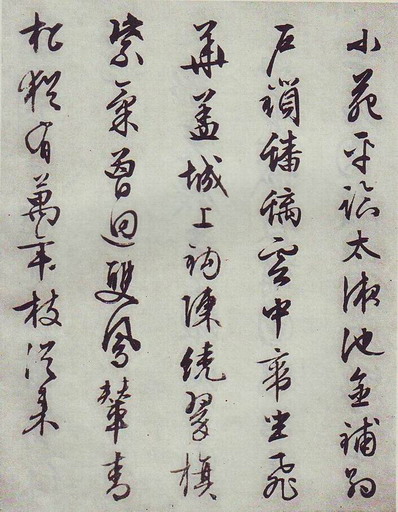 小苑平臨太液池金鋪約
戶鎖蟠螭雲中帝坐飛
華蓋城上鈎陳繞翠旗
紫氣曾迴雙鳳輦青
松猶有萬年枝從來